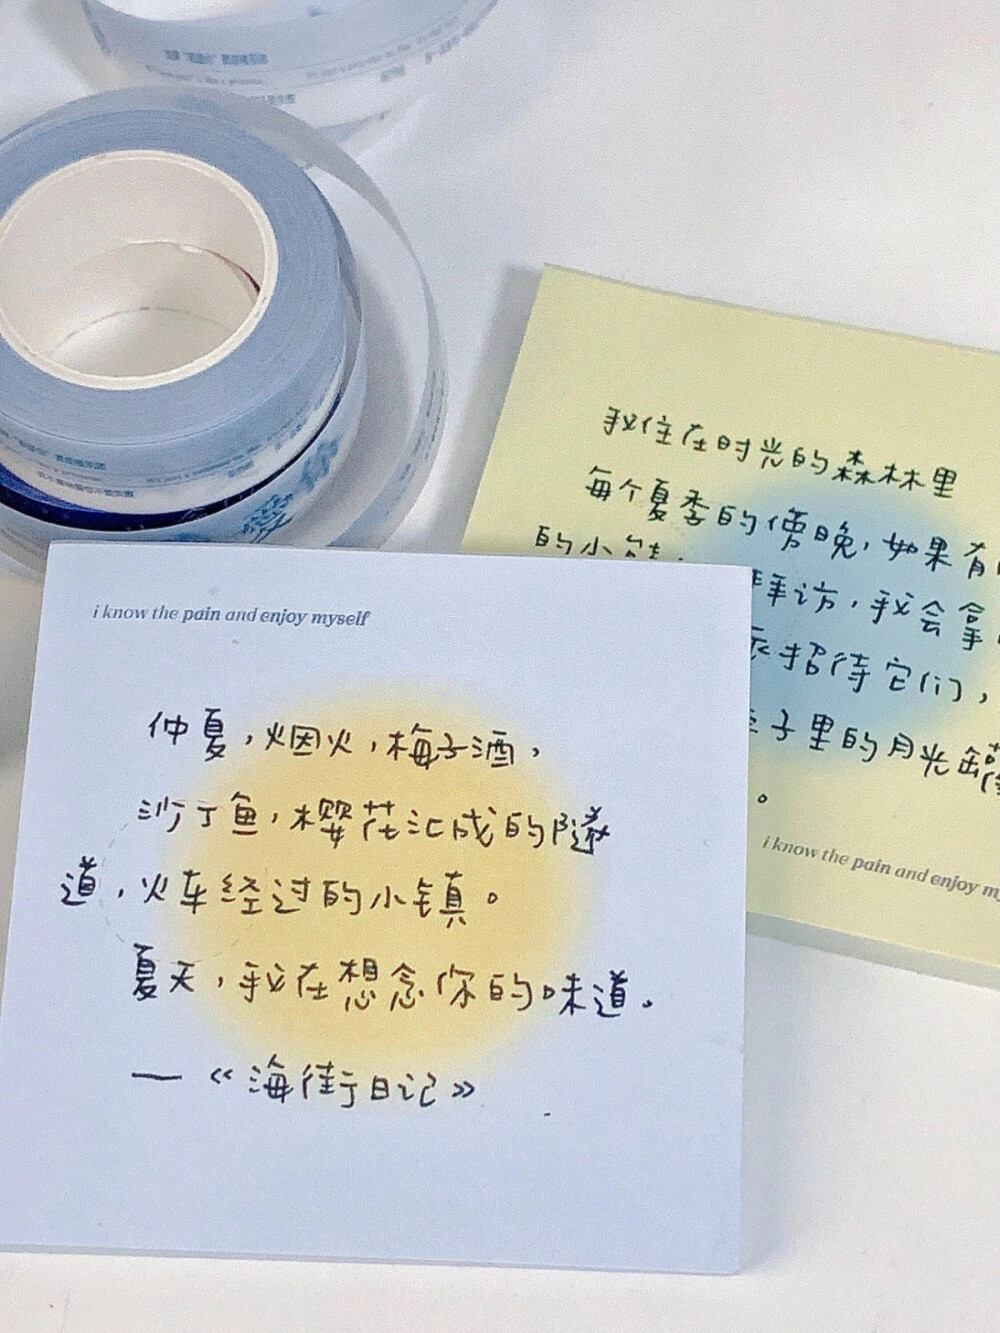 i know the pain and enjoy myself
仲夏，烟火，梅子酒，
沙丁鱼，樱花汇成的隧
道，火车经过的小镇。
夏天，我在想念你的味道。
—《海街日记》
我住在时光的森林里
每个夏季的傍晚，如果有
的小
拜访，我会拿
来招待它们，
子里的月光
。
i know the pain and enjoy m